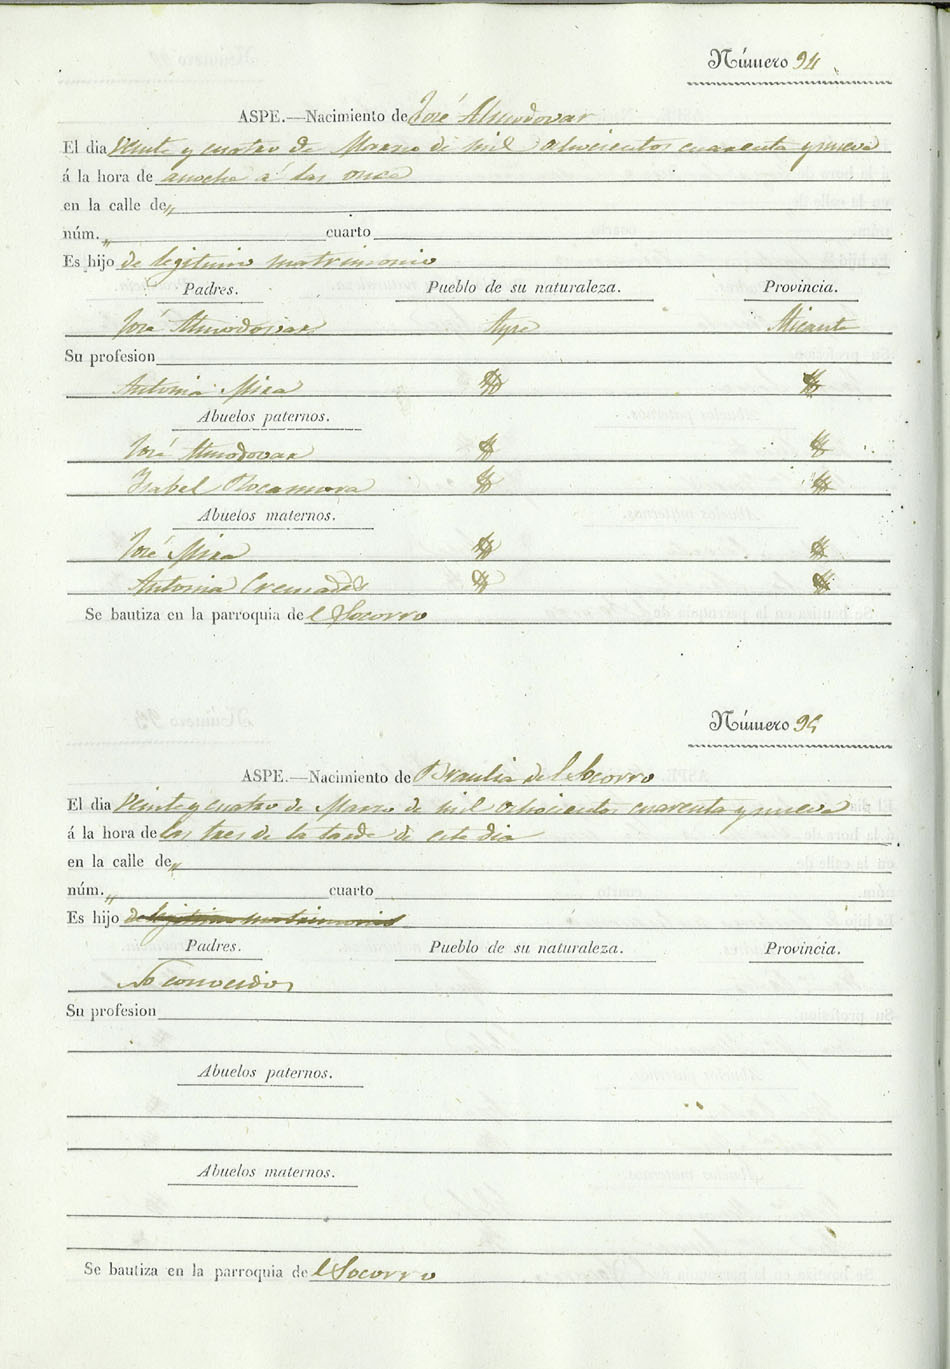 Número 94
ASPE.—Nacimiento de José Almodovar
El dia Veinte y cuatro de Marzo de mil ochocientos cuarenta y nueve
á la hora de anoche á las once
en la calle de „
núm. „ cuarto
Es hijo de legitimo matrimonio
Padres. Pueblo de su naturaleza. Provincia.
José Almodovar Aspe Alicante
Su profesion
Antonia Mira
Abuelos paternos.
José Almodovar
Isabel Rocamora
Abuelos maternos.
José Mira
Antonia Cremades
Se bautiza en la parroquia de el Socorro
Número 95
ASPE.—Nacimiento de Braulia del Socorro
El dia Veinte y cuatro de Marzo de mil ochocientos cuarenta y nueve
á la hora de las tres de la tarde de este dia
en la calle de „
núm. „ cuarto
Es hijo de legitimo matrimonio
Padres. Pueblo de su naturaleza. Provincia.
No conocidos
Su profesion
Abuelos paternos.
Abuelos maternos.
Se bautiza en la parroquia de el Socorro